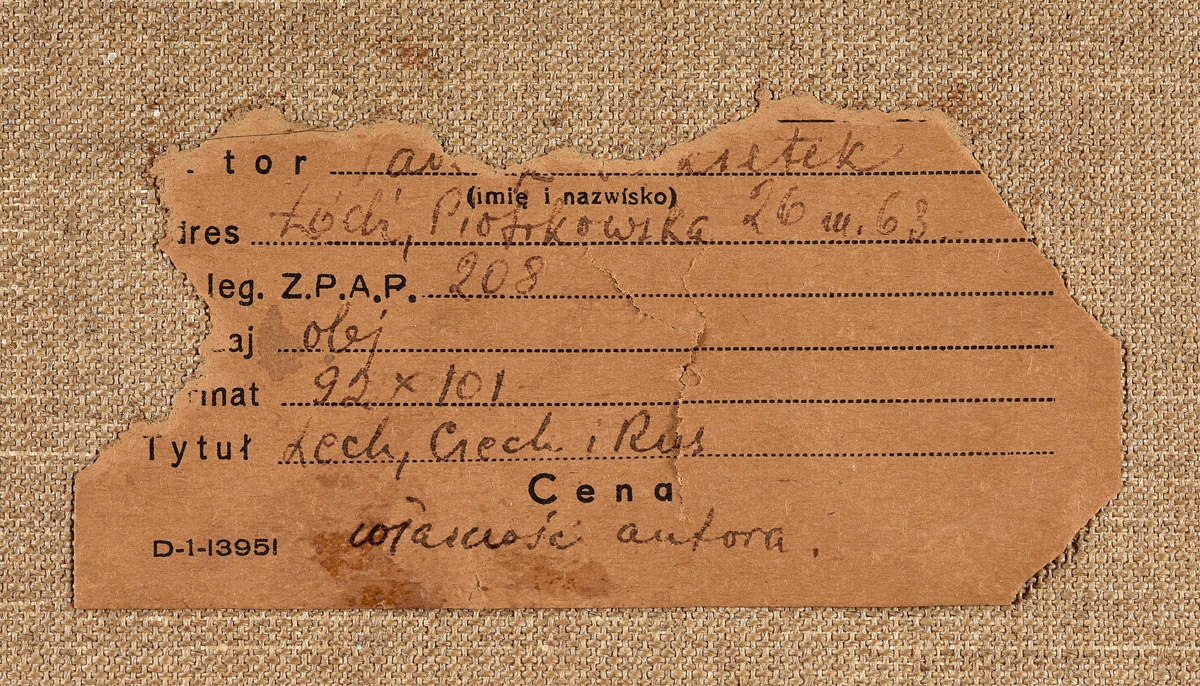 tor
(imię i nazwisko)
dres Łódź, Piotrkowska 26 m. 63.
leg. Z.P.A.P. 208
aj olej
mat 92 x 101
Tytuł Lech, Czech i Rus
Cena
D-1-13951 własność autora.